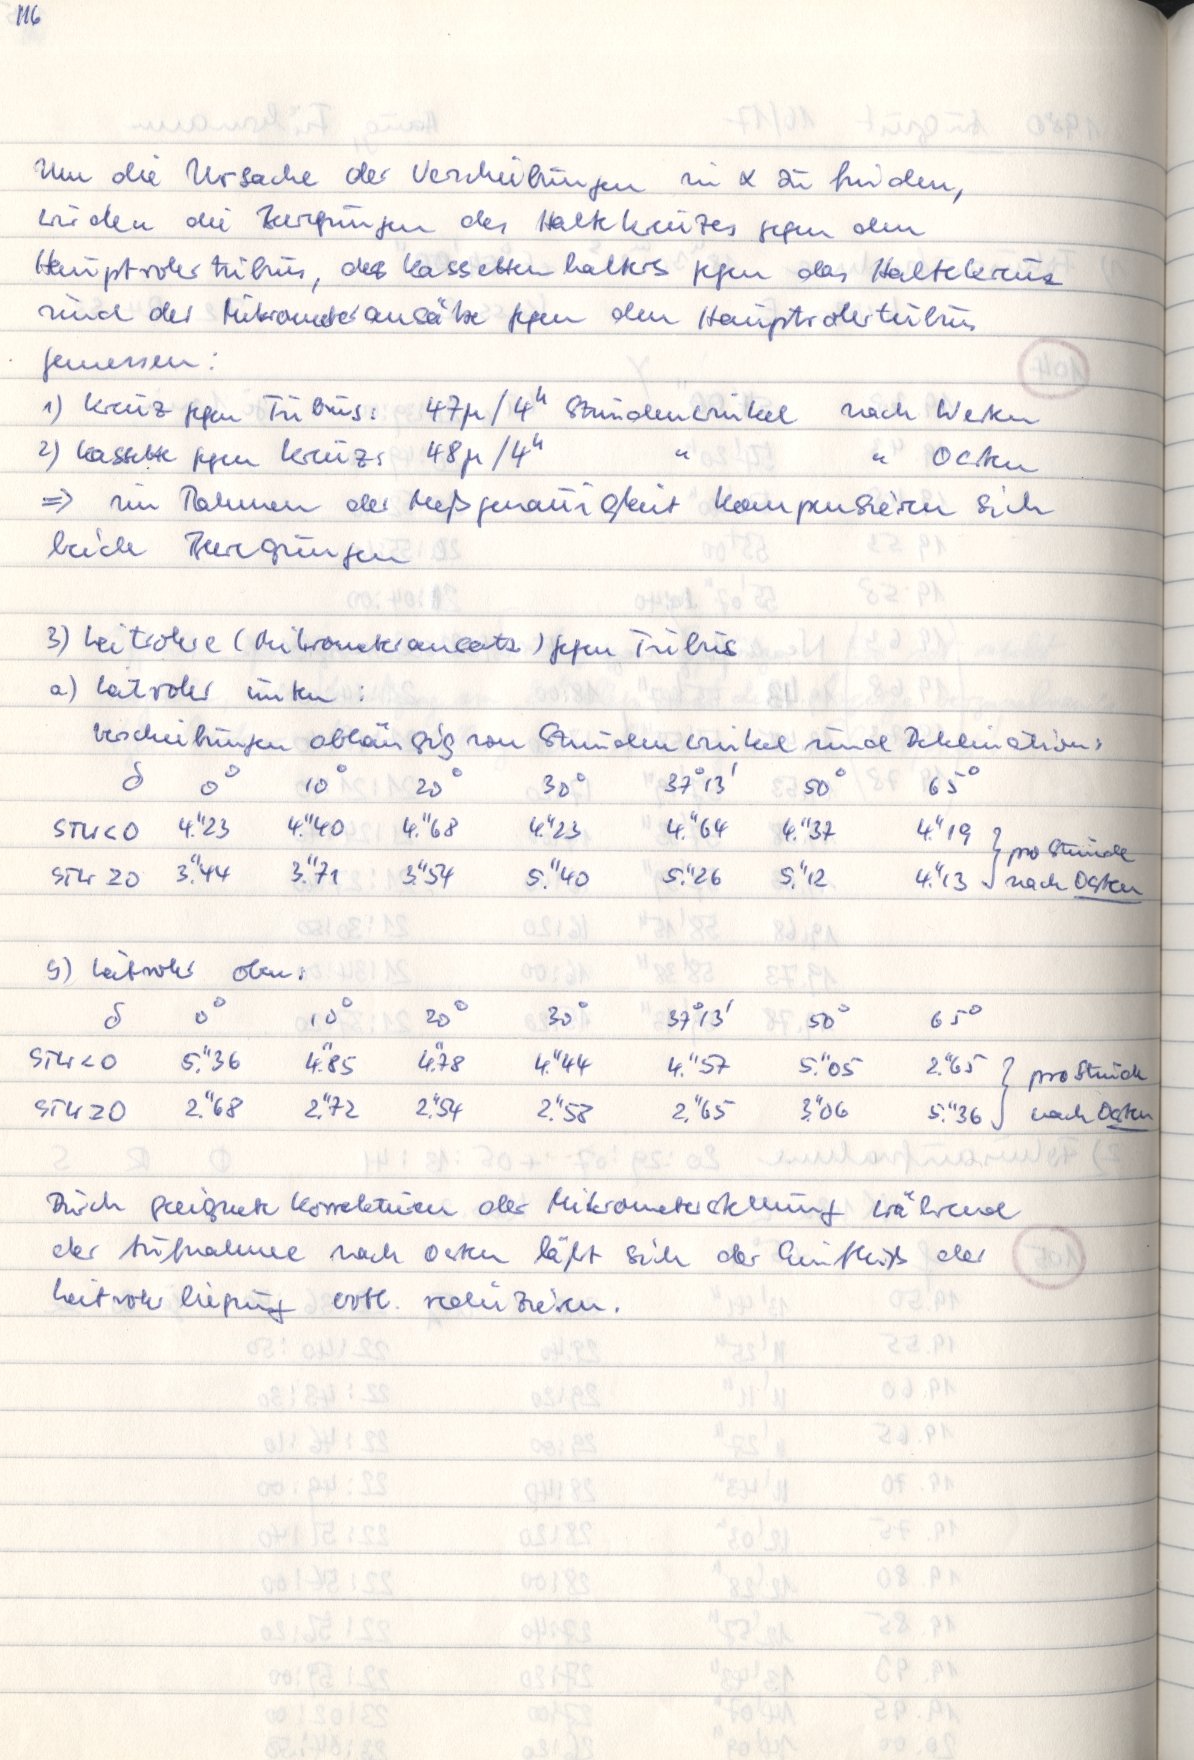 116
Um die Ursache der Verschiebungen in α zu finden,
wurden die Bewegungen des Haltekreuzes gegen den
Hauptrohrtubus, des Kassettenhalters gegen das Haltekreuz
und der Mikrometeransätze gegen den Hauptrohrtubus
gemessen:
1) Kreuz gegen Tubus: 47μ/4ʰ Stundenwinkel nach Westen
2) Kassette gegen Kreuz: 48μ/4ʰ " " Osten
⇒ im Rahmen der Meßgenauigkeit kompensieren sich
beide Bewegungen
3) Leitrohre (Mikrometeransatz) gegen Tubus
a) Leitrohr unten:
Verschiebungen abhängig von Stundenwinkel und Deklination:
δ 0° 10° 20° 30° 37°13' 50° 65°
STW<0 4."23 4."40 4."68 4."23 4."64 4."37 4."19 } pro Stunde
STW≥0 3."44 3."71 3."54 5."40 5."26 5."12 4."13 nach Osten
b) Leitrohr oben:
δ 0° 10° 20° 30° 37°13' 50° 65°
STW<0 5."36 4."85 4."78 4."44 4."57 5."05 2."65 } pro Stunde
STW≥0 2."68 2."72 2."54 2."58 2."65 3."06 5."36 nach Osten
Durch geeignete Korrekturen der Mikrometerstellung während
der Aufnahme nach Osten läßt sich der Einfluß der
Leitrohrbiegung evtl. reduzieren.